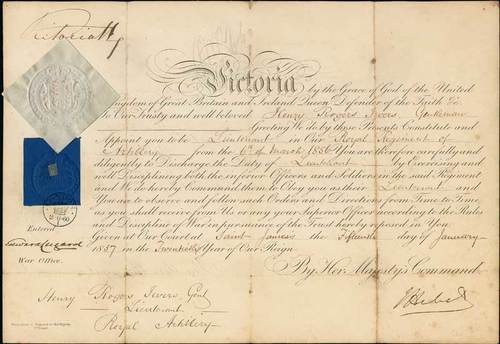 Victoria R
Victoria by the Grace of God of the United
Kingdom of Great Britain and Ireland Queen, Defender of the Faith &c
To Our Trusty and well beloved Henry Rogers Ivers Gentleman
Greeting We do by these Presents Constitute and
Appoint you to be Lieutenant in Our Royal Regiment of
Artillery from the 6th March 1856 You are therefore carefully and
diligently to Discharge the Duty of Lieutenant by Exercising and
well Disciplining both the inferior Officers and Soldiers in the said Regiment
and We do hereby Command them to Obey you as their Lieutenant and
You are to observe and follow such Orders and Directions from Time to Time
as you shall receive from Us or any your Superior Officer according to the Rules
and Discipline of War in pursuance of the Trust hereby reposed in You
Given at Our Court at Saint James's the fifteenth day of January
1857 in the Twentieth Year of Our Reign
By Her Majesty's Command
Entered
War Office.
Henry Rogers Ivers Gent
Lieutenant
Royal Artillery